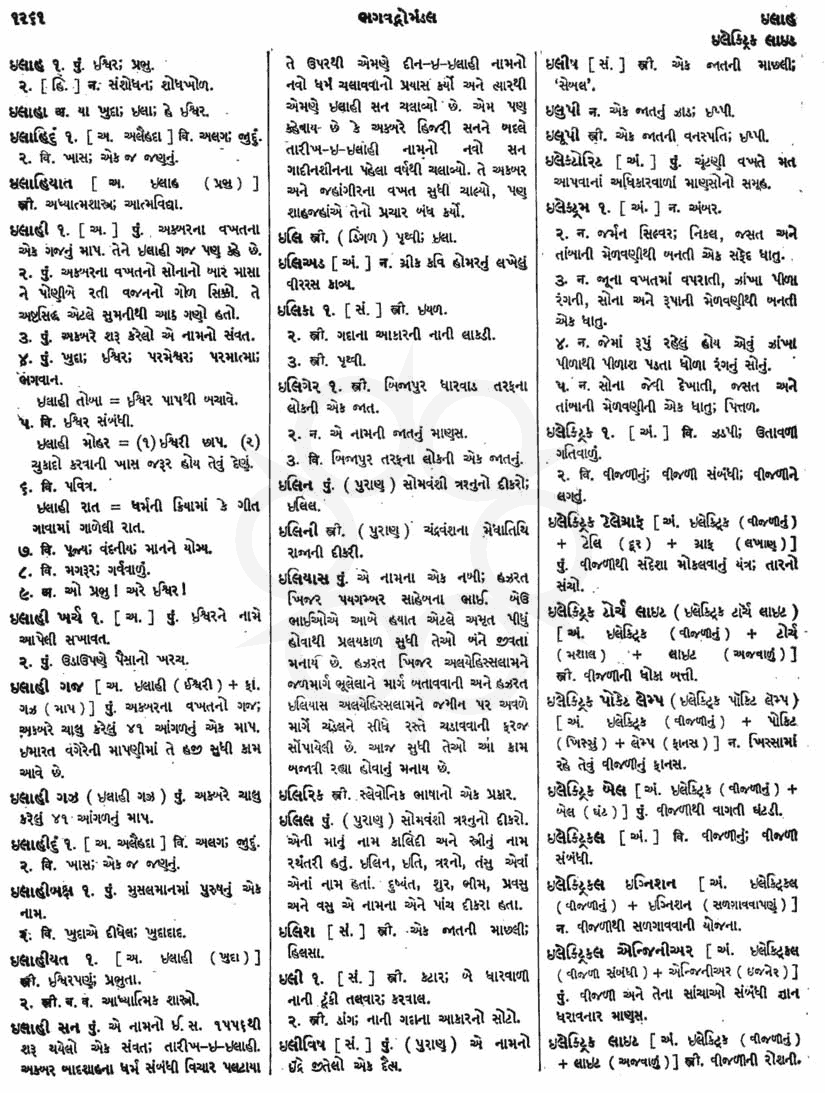 ૧૨૬૧
ભગવદ્ગોમંડલ
ઇલાહ
ઇલેક્ટ્રિક લાઇટ
ઇલાહ ૧. પું. ઈશ્વર; પ્રભુ.
૨. [ હિં. ] ન. સંશોધન; શોધખોળ.
ઇલાહા અ. યા ખુદા; ઇલા; હે ઈશ્વર.
ઇલાહિદું ૧. [ અ. અલૈહદા ] વિ. અલગ; જુદું.
૨. વિ. ખાસ; એક જ જણનું.
ઇલાહિયાત [ અ. ઇલાહ ( પ્રભુ ) ]
સ્ત્રી. અધ્યાત્મશાસ્ત્ર; આત્મવિદ્યા.
ઇલાહી ૧. [ અ. ] પું. અકબરના વખતના
એક ગજનું માપ. તેને ઇલાહી ગજ પણ કહે છે.
૨. પું. અકબરના વખતનો સોનાનો બાર માસા
ને પોણીબે રતી વજનનો ગોળ સિક્કો. તે
અષ્ટસિદ્ધ એટલે સુમનીથી આઠ ગણો હતો.
૩. પું. અકબરે શરૂ કરેલો એ નામનો સંવત.
૪. પું. ખુદા; ઈશ્વર; પરમેશ્વર; પરમાત્મા;
ભગવાન.
ઇલાહી તોબા = ઈશ્વર પાપથી બચાવે.
૫. વિ. ઈશ્વર સંબંધી.
ઇલાહી મોહર = (૧) ઈશ્વરી છાપ. (૨)
ચુકાદો કરવાની ખાસ જરૂર હોય તેવું દેણું.
૬. વિ. પવિત્ર.
ઇલાહી રાત = ધર્મની ક્રિયામાં કે ગીત
ગાવામાં ગાળેલી રાત.
૭. વિ. પૂજ્ય; વંદનીય; માનને યોગ્ય.
૮. વિ. મગરૂર; ગર્વવાળું.
૯. અ. ઓ પ્રભુ ! અરે ઈશ્વર !
ઇલાહી ખર્ચ ૧. [ અ. ] પું. ઈશ્વરને નામે
આપેલી સખાવત.
૨. પું. ઉડાઉપણે પૈસાનો ખરચ.
ઇલાહી ગજ [ અ. ઇલાહી ( ઈશ્વરી ) + ફા.
ગઝ ( માપ ) ] પું. અકબરના વખતનો ગજ;
અકબરે ચાલુ કરેલું ૪૧ આંગળનું એક માપ.
ઇમારત વગેરેની માપણીમાં તે હજી સુધી કામ
આવે છે.
ઇલાહી ગઝ ( ઇલાહી ગઝ ) પું. અકબરે ચાલુ
કરેલું ૪૧ આંગળનું માપ.
ઇલાહીદું ૧. [ અ. અલૈહદા ] વિ. અલગ; જુદું.
૨. વિ. ખાસ; એક જ જણનું.
ઇલાહીબક્ષ ૧. પું. મુસલમાનમાં પુરુષનું એક
નામ.
૨. વિ. ખુદાએ દીધેલ; ખુદાદાદ.
ઇલાહીયત ૧. [ અ. ઇલાહી ( ખુદા ) ]
સ્ત્રી. ઈશ્વરપણું; પ્રભુતા.
૨. સ્ત્રી. બ. વ. આધ્યાત્મિક શાસ્ત્રો.
ઇલાહી સન પું. એ નામનો ઈ. સ. ૧૫૫૬થી
શરૂ થયેલો એક સંવત; તારીખ-ઇ-ઇલાહી.
અકબર બાદશાહના ધર્મ સંબંધી વિચાર પલટાયા
તે ઉપરથી એમણે દીન-ઇ-ઇલાહી નામનો
નવો ધર્મ ચલાવવાનો પ્રયાસ કર્યો અને ત્યારથી
એમણે ઇલાહી સન ચલાવ્યો છે. એમ પણ
કહેવાય છે કે અકબરે હિજરી સનને બદલે
તારીખ-ઇ-ઇલાહી નામનો નવો સન
ગાદીનશીનના પહેલા વર્ષથી ચલાવ્યો. તે અકબર
અને જહાંગીરના વખત સુધી ચાલ્યો, પણ
શાહજહાંએ તેનો પ્રચાર બંધ કર્યો.
ઇલિ સ્ત્રી. ( ડિંગળ ) પૃથ્વી; ઇલા.
ઇલિઅડ [ અં. ] ન. ગ્રીક કવિ હોમરનું લખેલું
વીરરસ કાવ્ય.
ઇલિકા ૧. [ સં. ] સ્ત્રી. ઇયળ.
૨. સ્ત્રી. ગદાના આકારની નાની લાકડી.
૩. સ્ત્રી. પૃથ્વી.
ઇલિગેર ૧. સ્ત્રી. બિજાપુર ધારવાડ તરફના
લોકની એક જાત.
૨. ન. એ નામની જાતનું માણસ.
૩. વિ. બિજાપુર તરફના લોકની એક જાતનું.
ઇલિન પું. ( પુરાણ ) સોમવંશી ત્રસ્નુનો દીકરો;
ઇલિલ.
ઇલિની સ્ત્રી. ( પુરાણ ) ચંદ્રવંશના મેધાતિથિ
રાજાની દીકરી.
ઇલિયાસ પું. એ નામના એક નબી; હઝરત
ખિજર પયગમ્બર સાહેબના ભાઈ. બેઉ
ભાઈઓએ આબે હયાત એટલે અમૃત પીધું
હોવાથી પ્રલયકાળ સુધી તેઓ બંને જીવતા
મનાય છે. હઝરત ખિજર અલયેહિસ્સલામને
જળમાર્ગે ભૂલેલાને માર્ગ બતાવવાની અને હઝરત
ઇલિયાસ અલયેહિસ્સલામને જમીન પર અવળે
માર્ગે ચડેલને સીધે રસ્તે ચડાવવાની ફરજ
સોંપાયેલી છે. આજ સુધી તેઓ આ કામ
બજાવી રહ્યા હોવાનું મનાય છે.
ઇલિરિક સ્ત્રી. સ્લેવોનિક ભાષાનો એક પ્રકાર.
ઇલિલ પું. ( પુરાણ ) સોમવંશી ત્રસ્નુનો દીકરો.
એની માનું નામ કાલિંદી અને સ્ત્રીનું નામ
રથંતરી હતું. ઇલિન, ઇતિ, ત્રસ્નો, તંસુ એવાં
એનાં નામ હતાં. દુષ્યંત, શુર, ભીમ, પ્રવસુ
અને વસુ એ નામના એને પાંચ દીકરા હતા.
ઇલિશ [ સં. ] સ્ત્રી. એક જાતની માછલી;
હિલસા.
ઇલી ૧. [ સં. ] સ્ત્રી. કટાર; બે ધારવાળી
નાની ટૂંકી તલવાર; કરવાલ.
૨. સ્ત્રી. ડાંગ; નાની ગદાના આકારનો સોટો.
ઇલીવિષ [ સં. ] પું. ( પુરાણ ) એ નામનો
ઇંદ્રે જીતેલો એક દૈત્ય.
ઇલીષ [ સં. ] સ્ત્રી. એક જાતની માછલી;
‘સેબલ’.
ઇલુપી ન. એક જાતનું ઝાડ; ઇપ્પી.
ઇલૂપી સ્ત્રી. એક જાતની વનસ્પતિ; ઇપ્પી.
ઇલેક્ટોરિટ [ અં. ] પું. ચૂંટણી વખતે મત
આપવાનાં અધિકારવાળા માણસોનો સમૂહ.
ઇલેક્ટ્રમ ૧. [ અં. ] ન. અંબર.
૨. ન. જર્મન સિલ્વર; નિકલ, જસત અને
તાંબાની મેળવણીથી બનતી એક સફેદ ધાતુ.
૩. ન. જૂના વખતમાં વપરાતી, ઝાંખા પીળા
રંગની, સોના અને રૂપાની મેળવણીથી બનતી
એક ધાતુ.
૪. ન. જેમાં રૂપું રહેલું હોય એવું ઝાંખા
પીળાથી પીળાશ પડતા ધોળા રંગનું સોનું.
૫. ન. સોના જેવી દેખાતી, જસત અને
તાંબાની મેળવણીની એક ધાતુ; પિત્તળ.
ઇલેક્ટ્રિક ૧. [ અં. ] વિ. ઝડપી; ઉતાવળી
ગતિવાળું.
૨. વિ. વીજળીનું; વીજળી સંબંધી; વીજળીને
લગતું.
ઇલેક્ટ્રિક ટેલેગ્રાફ [ અં. ઇલેક્ટ્રિક ( વીજળીનું )
+ ટેલિ ( દૂર ) + ગ્રાફ ( લખાણ ) ]
પું. વીજળીથી સંદેશા મોકલવાનું યંત્ર; તારનો
સંચો.
ઇલેક્ટ્રિક ટોર્ચ લાઇટ ( ઇલેક્ટ્રિક ટૉર્ચ લાઇટ )
[ અં. ઇલેક્ટ્રિક ( વીજળીનું ) + ટોર્ચ
( મશાલ ) + લાઇટ ( અજવાળું ) ]
સ્ત્રી. વીજળીની ધોકા બત્તી.
ઇલેક્ટ્રિક પોકેટ લેમ્પ ( ઇલેક્ટ્રિક પૉકિટ લૅમ્પ )
[ અં. ઇલેક્ટ્રિક ( વીજળીનું ) + પૉકિટ
( ખિસ્સું ) + લેમ્પ ( ફાનસ ) ] ન. ખિસ્સામાં
રહે તેવું વીજળીનું ફાનસ.
ઇલેક્ટ્રિક બેલ [ અં. ઇલેક્ટ્રિક ( વીજળીનું ) +
બેલ ( ઘંટ ) ] પું. વીજળીથી વાગતી ઘંટડી.
ઇલેક્ટ્રિકલ [ અં. ] વિ. વીજળીનું; વીજળી
સંબંધી.
ઇલેક્ટ્રિકલ ઇગ્નિશન [ અં. ઇલેક્ટ્રિકલ
( વીજળીનું ) + ઇગ્નિશન ( સળગાવવાપણું ) ]
ન. વીજળીથી સળગાવવાની યોજના.
ઇલેક્ટ્રિકલ એન્જિનીઅર [ અં. ઇલેક્ટ્રિકલ
( વીજળી સંબંધી ) + એન્જિનીઅર ( ઇજનેર ) ]
પું. વીજળી અને તેના સાંચાઓ સંબંધી જ્ઞાન
ધરાવનાર માણસ.
ઇલેક્ટ્રિક લાઇટ [ અં. ઇલેક્ટ્રિક ( વીજળીનું )
+ લાઇટ ( અજવાળું ) ] સ્ત્રી. વીજળીની રોશની.